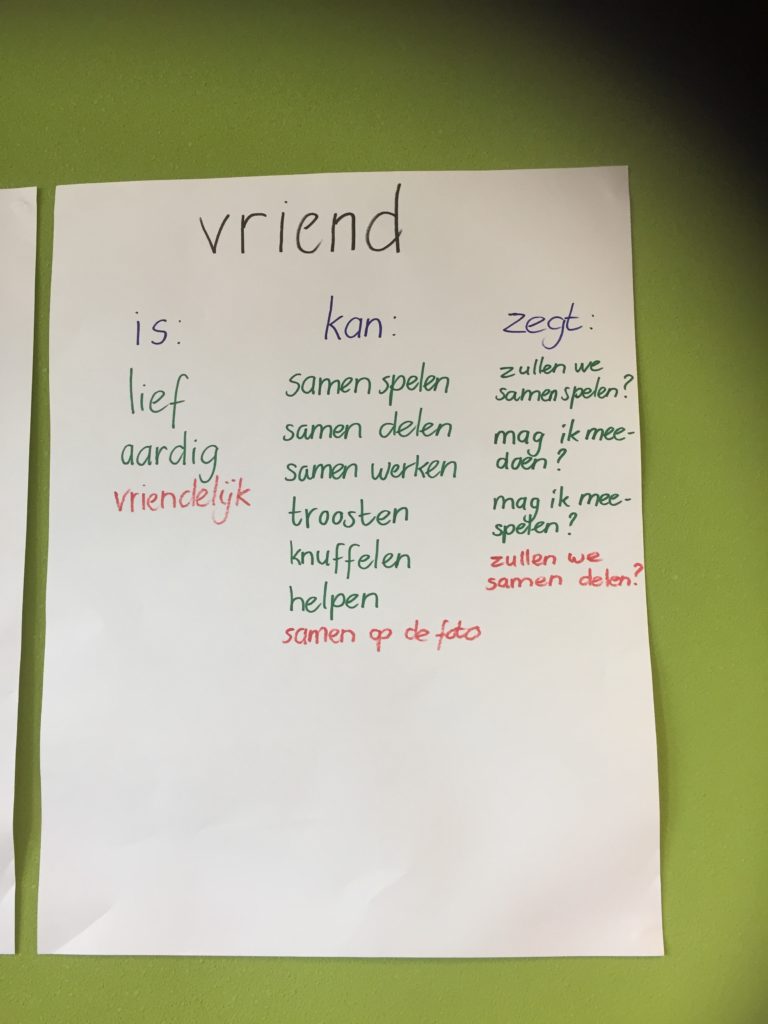 vriend
is:
lief
aardig
vriendelijk
kan:
samen spelen
samen delen
samen werken
troosten
knuffelen
helpen
samen op de foto
zegt:
zullen we
samen spelen?
mag ik mee-
doen?
mag ik mee-
spelen?
zullen we
samen delen?